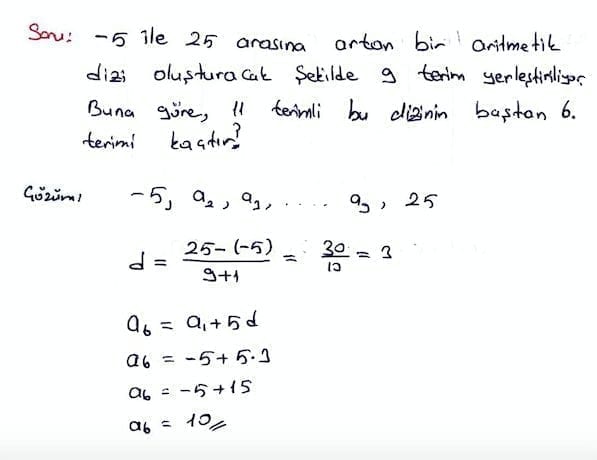 Soru: -5 ile 25 arasına artan bir aritmetik
dizi oluşturacak şekilde 9 terim yerleştiriliyor.
Buna göre, 11 terimli bu dizinin baştan 6.
terimi kaçtır?
Çözüm: -5, a₂, a₃, .... a₉, 25
d = 25-(-5)/9+1 = 30/10 = 3
a₆ = a₁+5d
a₆ = -5+5·3
a₆ = -5+15
a₆ = 10//